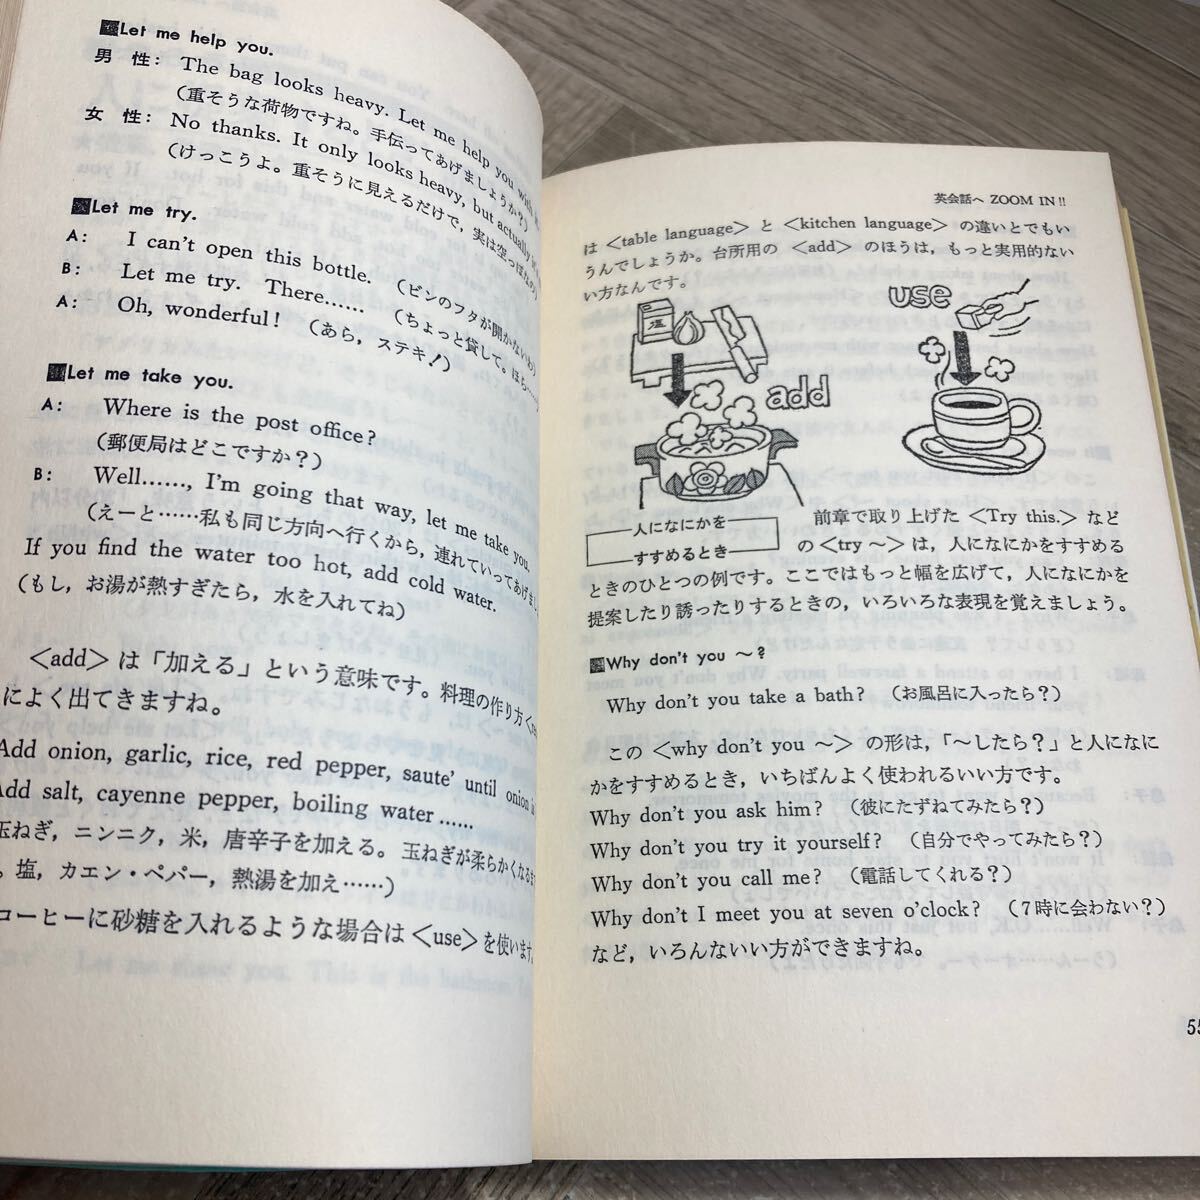 Let me help you.
男 性： The bag looks heavy. Let me help you with
（重そうな荷物ですね。手伝ってあげましょうか？）
女 性： No thanks. It only looks heavy, but actually
（けっこうよ。重そうに見えるだけで，実は空っぽなの）
Let me try.
A： I can't open this bottle. （ビンのフタが開かないわ）
B： Let me try. There…… （ちょっと貸して。ほら……）
A： Oh, wonderful！ （あら，ステキ！）
Let me take you.
A： Where is the post office？
（郵便局はどこですか？）
B： Well……, I'm going that way, let me take you.
（えーと……私も同じ方向へ行くから，連れていってあげましょ
If you find the water too hot, add cold water.
（もし，お湯が熱すぎたら，水を入れてね）
＜add＞は「加える」という意味です。料理の作り方
によく出てきますね。
Add onion, garlic, rice, red pepper, saute' until onion
Add salt, cayenne pepper, boiling water……
玉ねぎ，ニンニク，米，唐辛子を加える。玉ねぎが柔らかくなるま
，塩，カエン・ペパー，熱湯を加え……）
コーヒーに砂糖を入れるような場合は＜use＞を使います。
英会話へ ZOOM IN!!
は＜table language＞と＜kitchen language＞の違いとでもい
うんでしょうか。台所用の＜add＞のほうは，もっと実用的ない
い方なんです。
塩
add
use
人になにかを
すすめるとき
前章で取り上げた＜Try this.＞など
の＜try ～＞は，人になにかをすすめる
ときのひとつの例です。ここではもっと幅を広げて，人になにかを
提案したり誘ったりするときの，いろいろな表現を覚えましょう。
Why don't you ～？
Why don't you take a bath？ （お風呂に入ったら？）
この＜why don't you ～＞の形は，「～したら？」と人になに
かをすすめるとき，いちばんよく使われるいい方です。
Why don't you ask him？ （彼にたずねてみたら？）
Why don't you try it yourself？ （自分でやってみたら？）
Why don't you call me？ （電話してくれる？）
Why don't I meet you at seven o'clock？ （7時に会わない？）
など，いろんないい方ができますね。
55